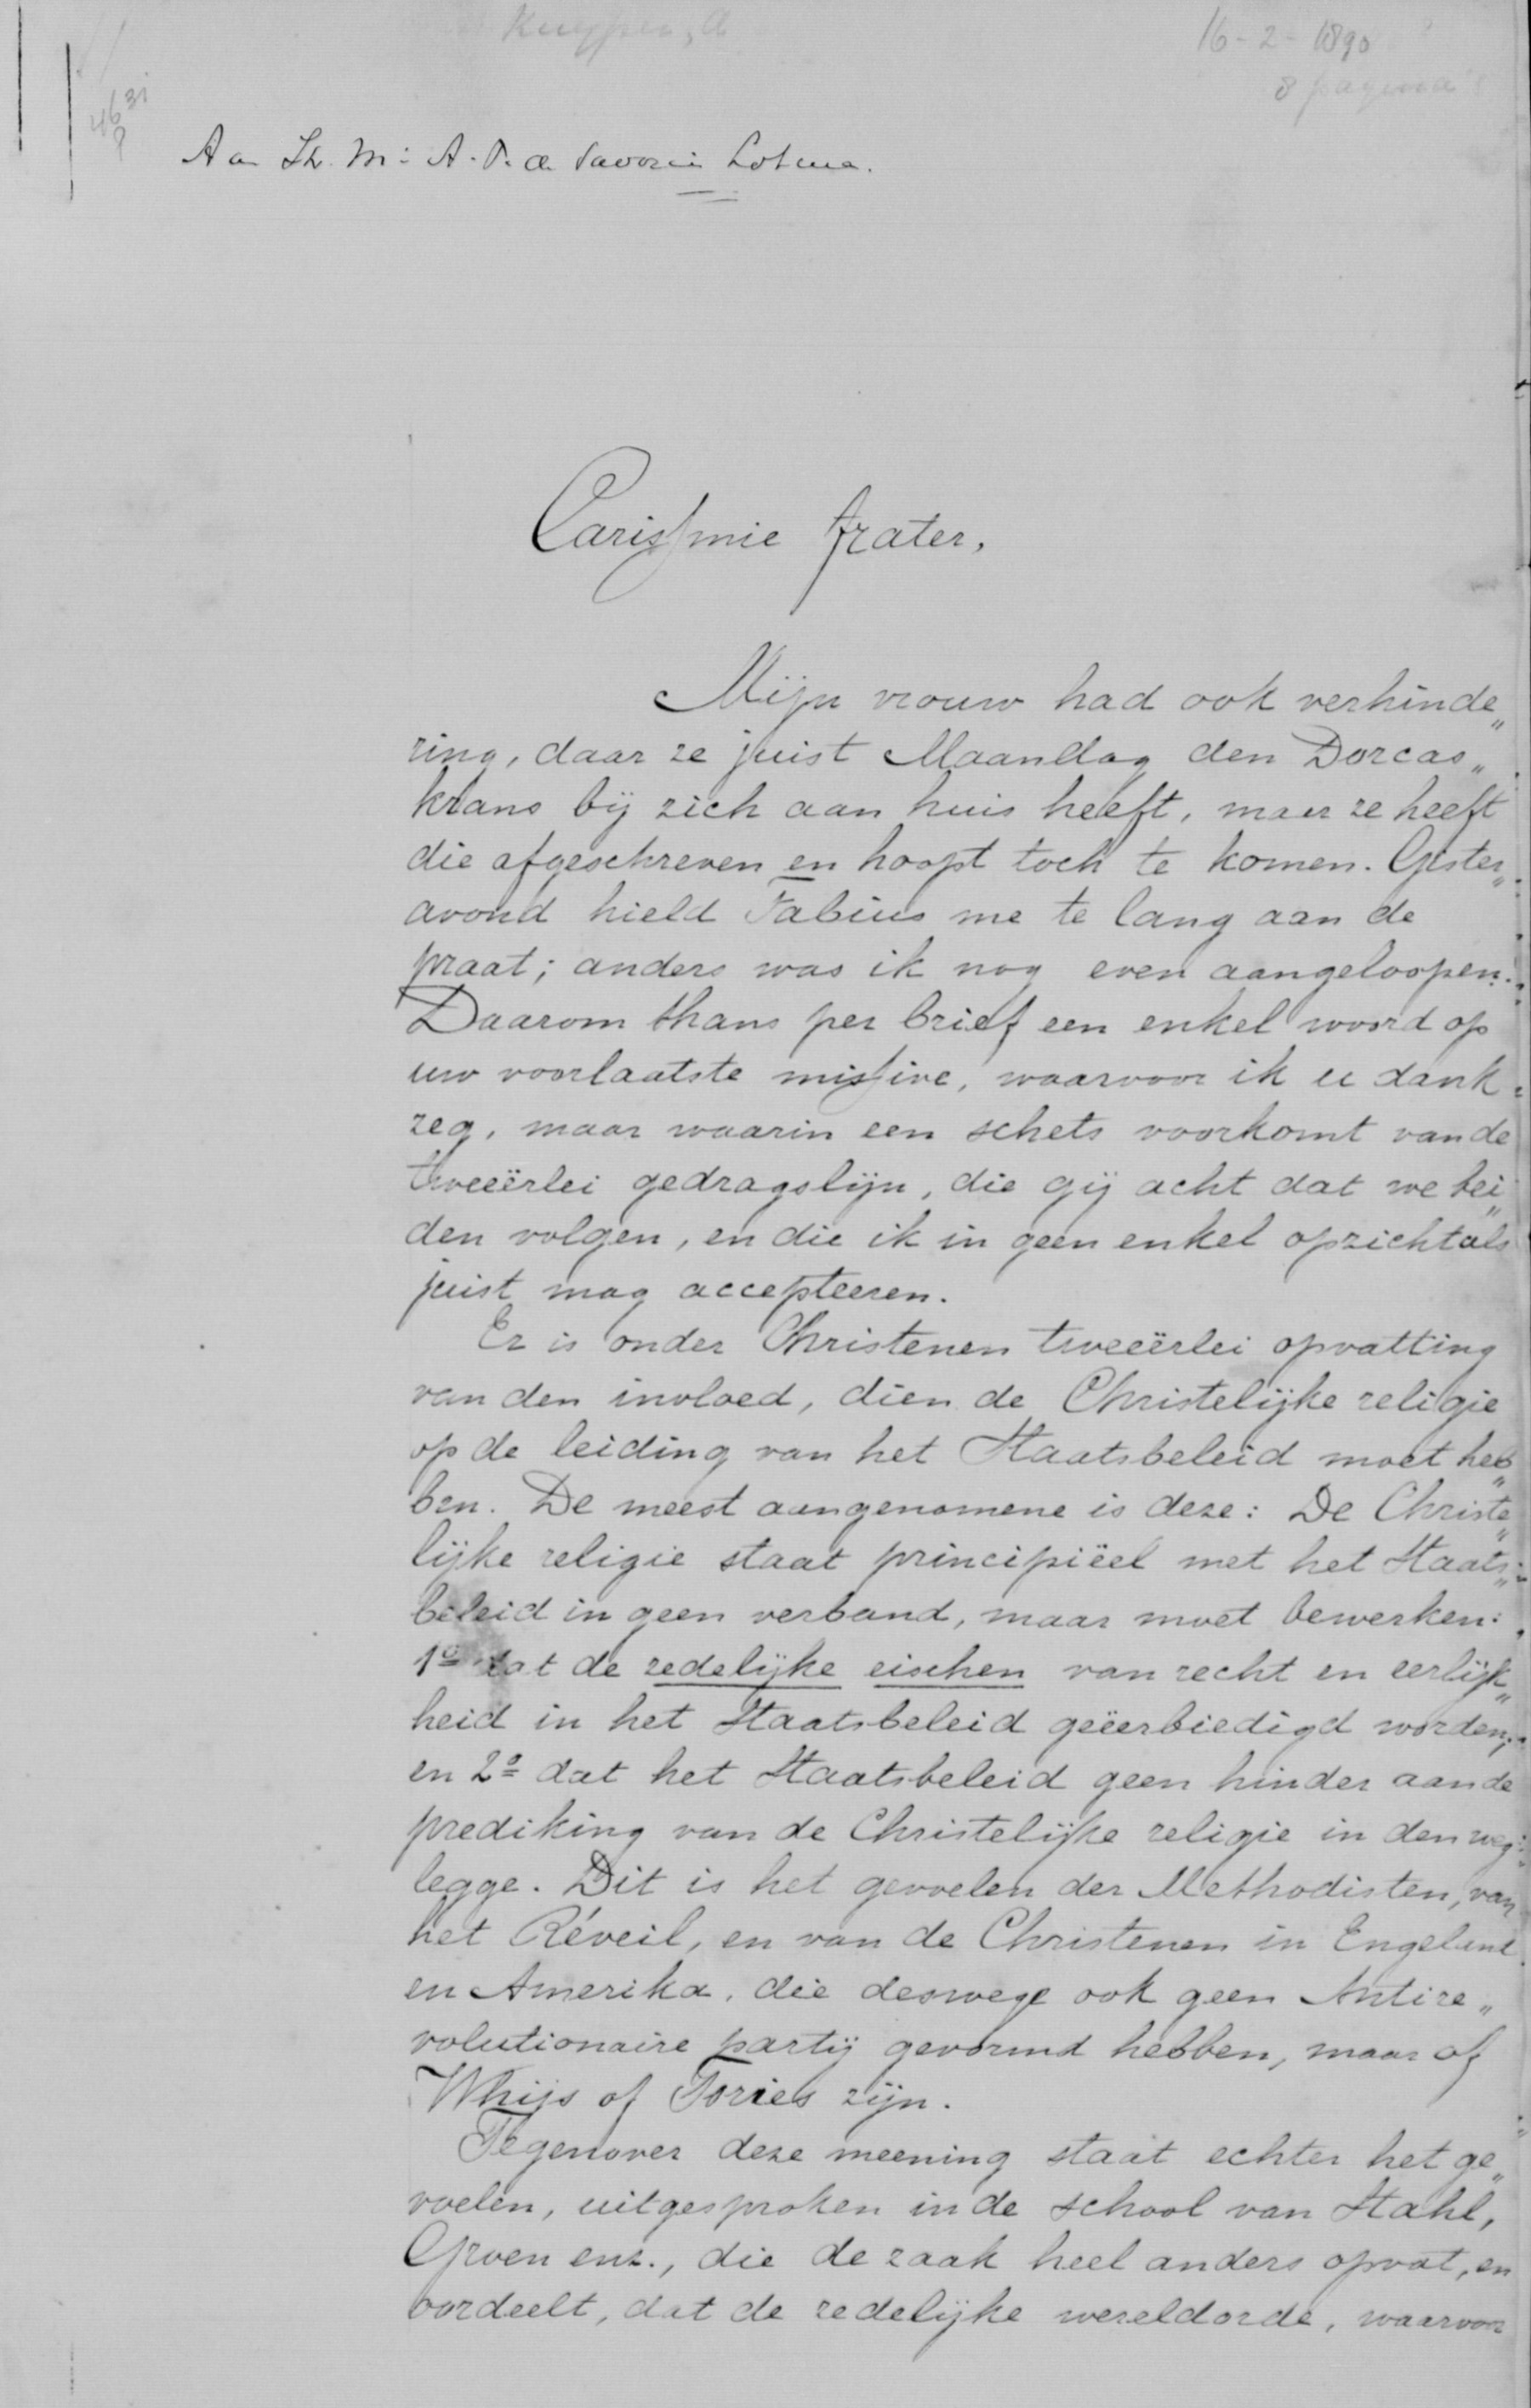 Kuyper, A
16-2-1890
8 pagina's
4631
Aan Jh. Mr. A. F. de Savornin Lohman.
Carissime frater,
Mijn vrouw had ook verhinde„
ring, daar ze juist Maandag den Dorcas„
krans bij zich aan huis heeft, maar ze heeft
die afgeschreven en hoopt toch te komen. Gister„
avond hield Fabius me te lang aan de
praat; anders was ik nog even aangeloopen.
Daarom thans per brief een enkel woord op
uw voorlaatste missive, waarvoor ik u dank
zeg, maar waarin een schets voorkomt van de
tweeërlei gedragslijn, die gij acht dat we bei„
den volgen, en die ik in geen enkel opzicht als
juist mag accepteeren.
Er is onder Christenen tweeërlei opvatting
van den invloed, dien de Christelijke religie
op de leiding van het Staatsbeleid moet heb„
ben. De meest aangenomene is deze: De Christe„
lijke religie staat principiëel met het Staats„
beleid in geen verband, maar moet bewerken:
1º dat de zedelijke eischen van recht en eerlijk„
heid in het Staatsbeleid geëerbiedigd worden;
en 2º dat het Staatsbeleid geen hinder aan de
prediking van de Christelijke religie in den weg
legge. Dit is het gevoelen der Methodisten, van
het Réveil, en van de Christenen in Engeland
en Amerika, die deswege ook geen Antire„
volutionaire partij gevormd hebben, maar of
Whigs of Tories zijn.
Tegenover deze meening staat echter het ge„
voelen, uitgesproken in de school van Stahl,
Groen enz., die de zaak heel anders opvat, en
oordeelt, dat de zedelijke wereldorde, waarvoor